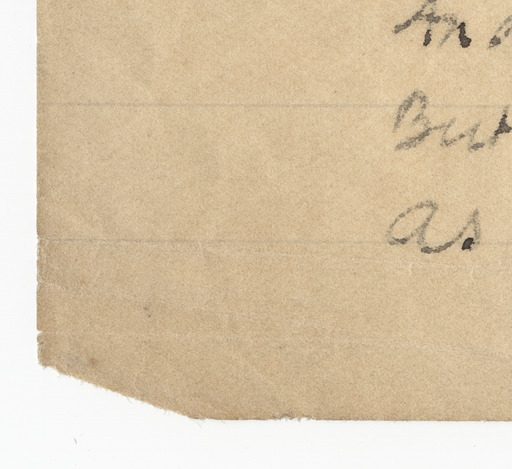 An
But
as